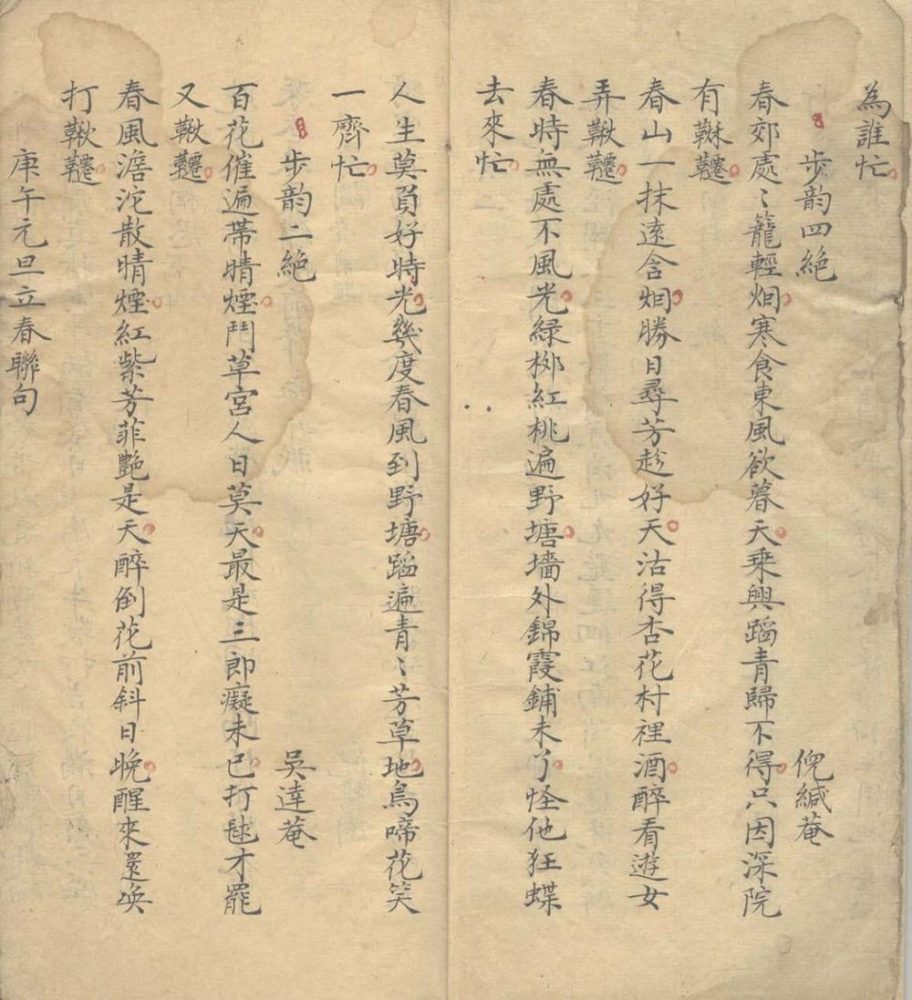 為誰忙
步韵四絶 倪緘菴
春郊處〻籠輕烟寒食東風欲暮天乘興蹈青歸不得只因深院
有鞦韆
春山一抹遠含烟勝日尋芳趁好天沽得杏花村裡酒醉看遊女
弄鞦韆
春時無處不風光綠柳紅桃遍野塘墻外錦霞鋪未了怪他狂蝶
去來忙
人生莫負好時光幾度春風到野塘蹈遍青〻芳草地鳥啼花笑
一齊忙
步韵二絶 吳達菴
百花催遍帯晴煙鬥草宮人日莫天最是三郎癡未已打毬才罷
又鞦韆
春風澹沱散晴煙紅紫芳菲艷是天醉倒花前斜日晚醒來還喚
打鞦韆
庚午元旦立春聯句